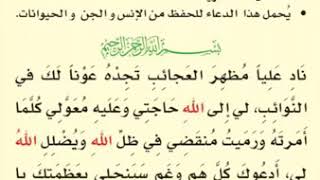 • يُحمل هذا الدعاء للحفظ من الإنس و الجن و الحيوانات.
بِسْمِ اللهِ الرَّحْمنِ الرَّحِيمِ
نَادِ عَلِياً مُظهِرَ العَجائِبِ تَجِدْهُ عَوْناً لَكَ في
النَّوَائِبِ، لي إلى الله حَاجَتي وَعَليهِ مُعَوَّلي كُلَّمَا
أَمَرتَهُ وَرَمَيتُ مُنقَضِي في ظِلِّ الله وَيُضْلِلِ اللهُ
لي، أَدعُوكَ كُلَّ هَمٍ وَغَمٍ سَيَنجَلي بِعَظَمَتِكَ يا